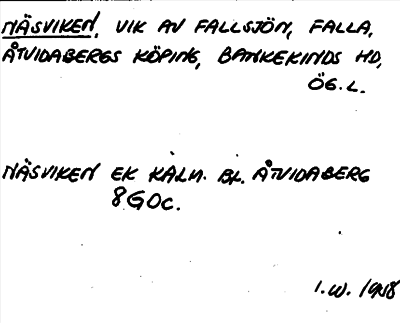 NÄSVIKEN, VIK AV FALLSJÖN, FALLA,
ÅTVIDABERGS KÖPING, BANKEKINDS HD,
ÖG.L.
NÄSVIKEN EK KALM. BL. ÅTVIDABERG
8G0c.
I.W. 1948